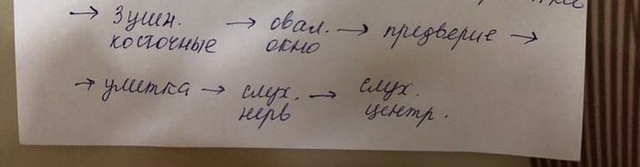 → 3 ушн. → овал. → предверие →
косточные окно
→ улитка → слух. → слух.
нерв центр.